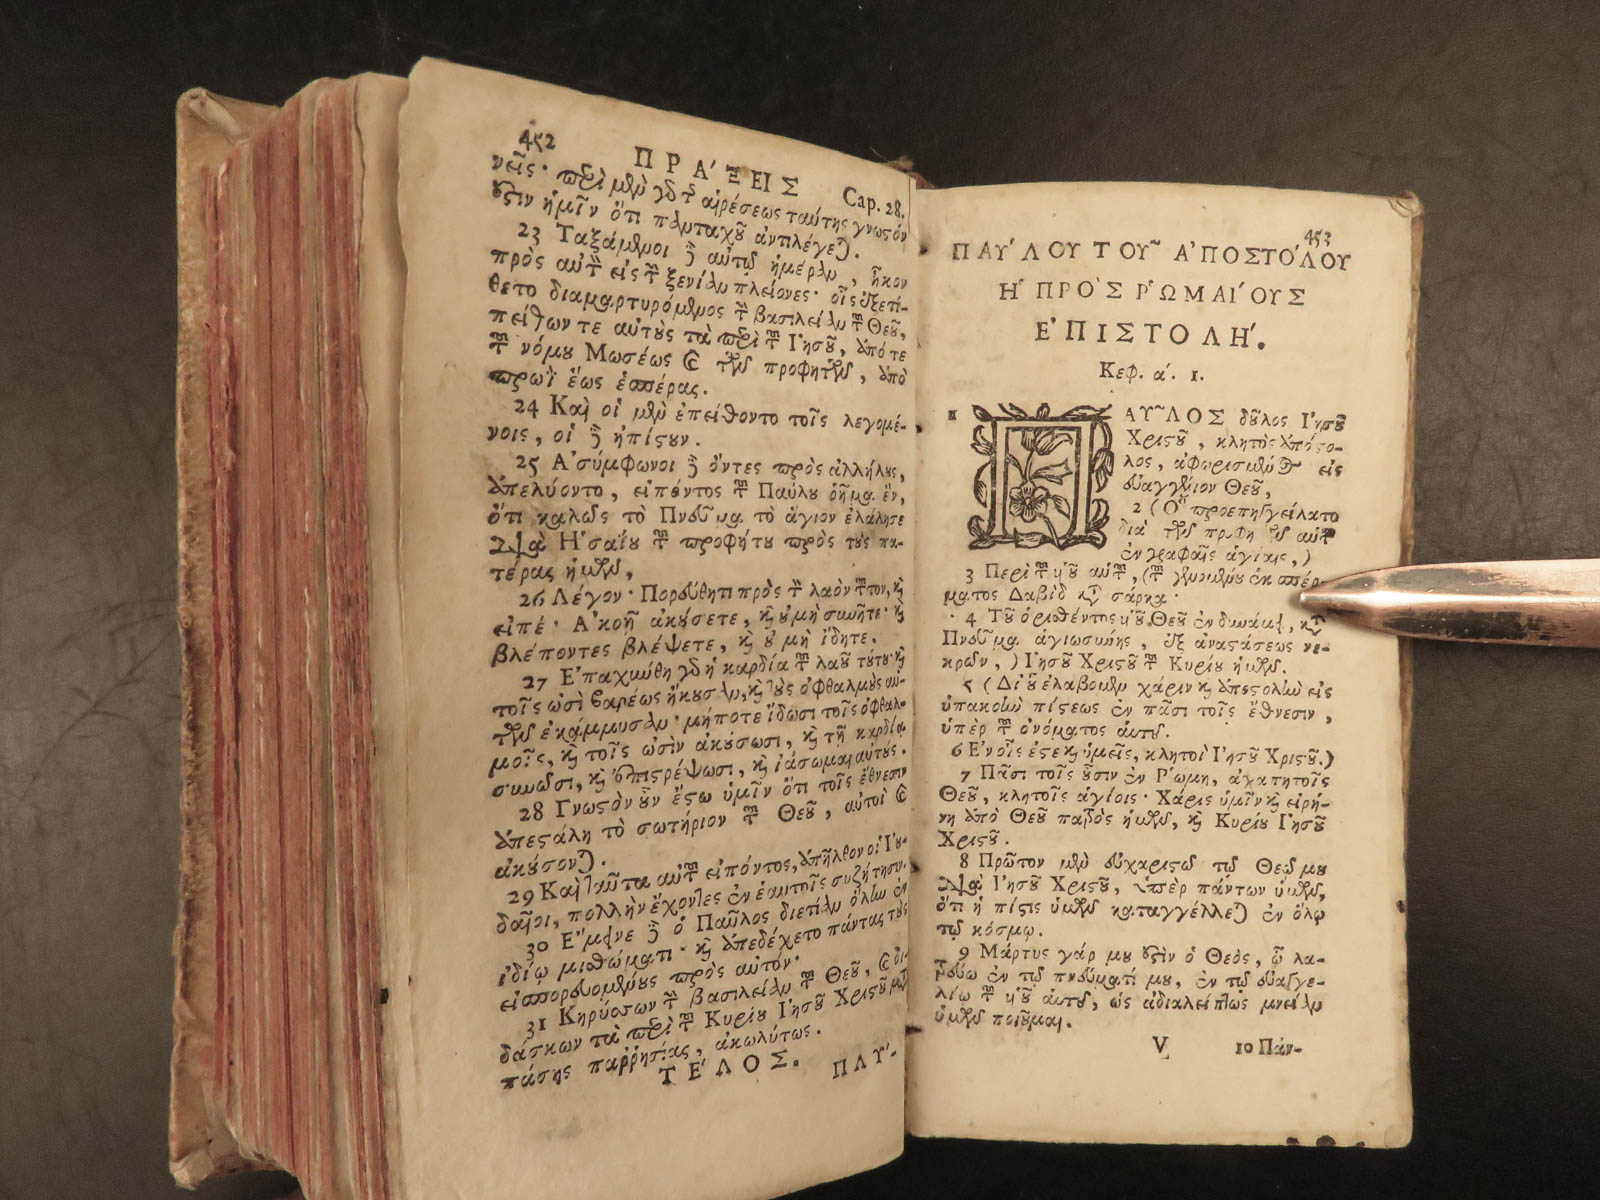 452 ΠΡΑ΄ΞΕΙΣ Cap. 28.
νεῖς· περὶ μὲν γὸ τ̃ αἱρέσεως ταύτης γνωστόν
ἐστιν ἡμῖν ὅτι πανταχοῦ ἀντιλέγεται.
23 Ταξάμενοι δὲ αὐτῷ ἡμέραν, ἧκον
πρὸς αὐτὸν εἰς τὴν ξενίαν πλείονες· οἷς ἐξετί-
θετο διαμαρτυρόμενος τὴν βασιλείαν τοῦ Θεοῦ,
πείθων τε αὐτοὺς τὰ περὶ τοῦ Ἰησοῦ, ἀπό τε
τοῦ νόμου Μωσέως καὶ τῶν προφητῶν, ἀπὸ
πρωῒ ἕως ἑσπέρας.
24 Καὶ οἱ μὲν ἐπείθοντο τοῖς λεγομέ-
νοις, οἱ δὲ ἠπίστουν.
25 Ἀσύμφωνοι δὲ ὄντες πρὸς ἀλλήλους,
ἀπελύοντο, εἰπόντος τοῦ Παύλου ῥῆμα ἓν,
ὅτι καλῶς τὸ Πνεῦμα τὸ ἅγιον ἐλάλησε
διὰ Ἡσαΐου τοῦ προφήτου πρὸς τοὺς πα-
τέρας ἡμῶν,
26 Λέγον· Πορεύθητι πρὸς τὸν λαὸν τοῦτον, καὶ
εἰπέ· Ἀκοῇ ἀκούσετε, καὶ οὐ μὴ συνῆτε· καὶ
βλέποντες βλέψετε, καὶ οὐ μὴ ἴδητε.
27 Ἐπαχύνθη γὰρ ἡ καρδία τοῦ λαοῦ τούτου· καὶ
τοῖς ὠσὶ βαρέως ἤκουσαν, καὶ τοὺς ὀφθαλμοὺς αὑ-
τῶν ἐκάμμυσαν· μήποτε ἴδωσι τοῖς ὀφθαλ-
μοῖς, καὶ τοῖς ὠσὶν ἀκούσωσι, καὶ τῇ καρδίᾳ
συνῶσι, καὶ ἐπιστρέψωσι, καὶ ἰάσωμαι αὐτούς.
28 Γνωστὸν οὖν ἔστω ὑμῖν ὅτι τοῖς ἔθνεσιν
ἀπεστάλη τὸ σωτήριον τοῦ Θεοῦ, αὐτοὶ καὶ
ἀκούσονται.
29 Καὶ ταῦτα αὐτοῦ εἰπόντος, ἀπῆλθον οἱ Ἰου-
δαῖοι, πολλὴν ἔχοντες ἐν ἑαυτοῖς συζήτησιν.
30 Ἔμεινε δὲ ὁ Παῦλος διετίαν ὅλην ἐν
ἰδίῳ μισθώματι· καὶ ἀπεδέχετο πάντας τοὺς
εἰσπορευομένους πρὸς αὐτόν·
31 Κηρύσσων τὴν βασιλείαν τοῦ Θεοῦ, καὶ δι-
δάσκων τὰ περὶ τοῦ Κυρίου Ἰησοῦ Χριστοῦ μετὰ
πάσης παῤῥησίας, ἀκωλύτως.
ΤΕ΄ΛΟΣ. ΠΑΥ΄-
453
ΠΑΥ΄ΛΟΥ ΤΟΥ͂ Α᾿ΠΟΣΤΟ΄ΛΟΥ
Ἡ ΠΡΟ`Σ Ῥ‘ΩΜΑΙ΄ΟΥΣ
Ἐ᾿ΠΙΣΤΟΛΗ΄.
Κεφ. α΄. 1.
ΠΑΥ͂ΛΟΣ δοῦλος Ἰησοῦ
Χριστοῦ, κλητὸς ἀπόστο-
λος, ἀφωρισμένος εἰς
εὐαγγέλιον Θεοῦ,
2 (Ὃ προεπηγγείλατο
διὰ τῶν προφητῶν αὑτοῦ
ἐν γραφαῖς ἁγίαις,)
3 Περὶ τοῦ υἱοῦ αὑτοῦ, (τοῦ γενομένου ἐκ σπέρ-
ματος Δαβὶδ κατὰ σάρκα·
4 Τοῦ ὁρισθέντος υἱοῦ Θεοῦ ἐν δυνάμει, κατὰ
Πνεῦμα ἁγιωσύνης, ἐξ ἀναστάσεως νε-
κρῶν,) Ἰησοῦ Χριστοῦ τοῦ Κυρίου ἡμῶν.
5 (Δι' οὗ ἐλάβομεν χάριν καὶ ἀποστολὴν εἰς
ὑπακοὴν πίστεως ἐν πᾶσι τοῖς ἔθνεσιν,
ὑπὲρ τοῦ ὀνόματος αὑτοῦ.
6 Ἐν οἷς ἐστε καὶ ὑμεῖς, κλητοὶ Ἰησοῦ Χριστοῦ.)
7 Πᾶσι τοῖς οὖσιν ἐν Ῥώμῃ, ἀγαπητοῖς
Θεοῦ, κλητοῖς ἁγίοις· Χάρις ὑμῖν καὶ εἰρή-
νη ἀπὸ Θεοῦ πατρὸς ἡμῶν, καὶ Κυρίου Ἰησοῦ
Χριστοῦ.
8 Πρῶτον μὲν εὐχαριστῶ τῷ Θεῷ μου
διὰ Ἰησοῦ Χριστοῦ, ὑπὲρ πάντων ὑμῶν,
ὅτι ἡ πίστις ὑμῶν καταγγέλλεται ἐν ὅλῳ
τῷ κόσμῳ.
9 Μάρτυς γάρ μου ἐστὶν ὁ Θεὸς, ᾧ λα-
τρεύω ἐν τῷ πνεύματί μου, ἐν τῷ εὐαγγε-
λίῳ τοῦ υἱοῦ αὑτοῦ, ὡς ἀδιαλείπτως μνείαν
ὑμῶν ποιοῦμαι.
V 10 Πάν-